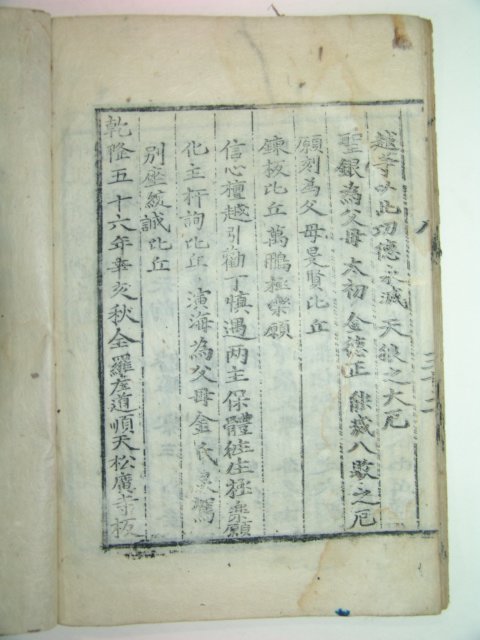 越等以此功德永滅 天狼之大厄
聖銀為父母 太初 金德正 能滅八敗之厄
願刻為父母是賢比丘
鍊板比丘萬鵬極樂願
信心檀越引勸丁慎遇兩主保體徃生極樂願
化主杆詢比丘 演海為父母金氏
別座紋誠比丘
乾隆五十六年辛亥秋全羅左道順天松廣寺板
三十二